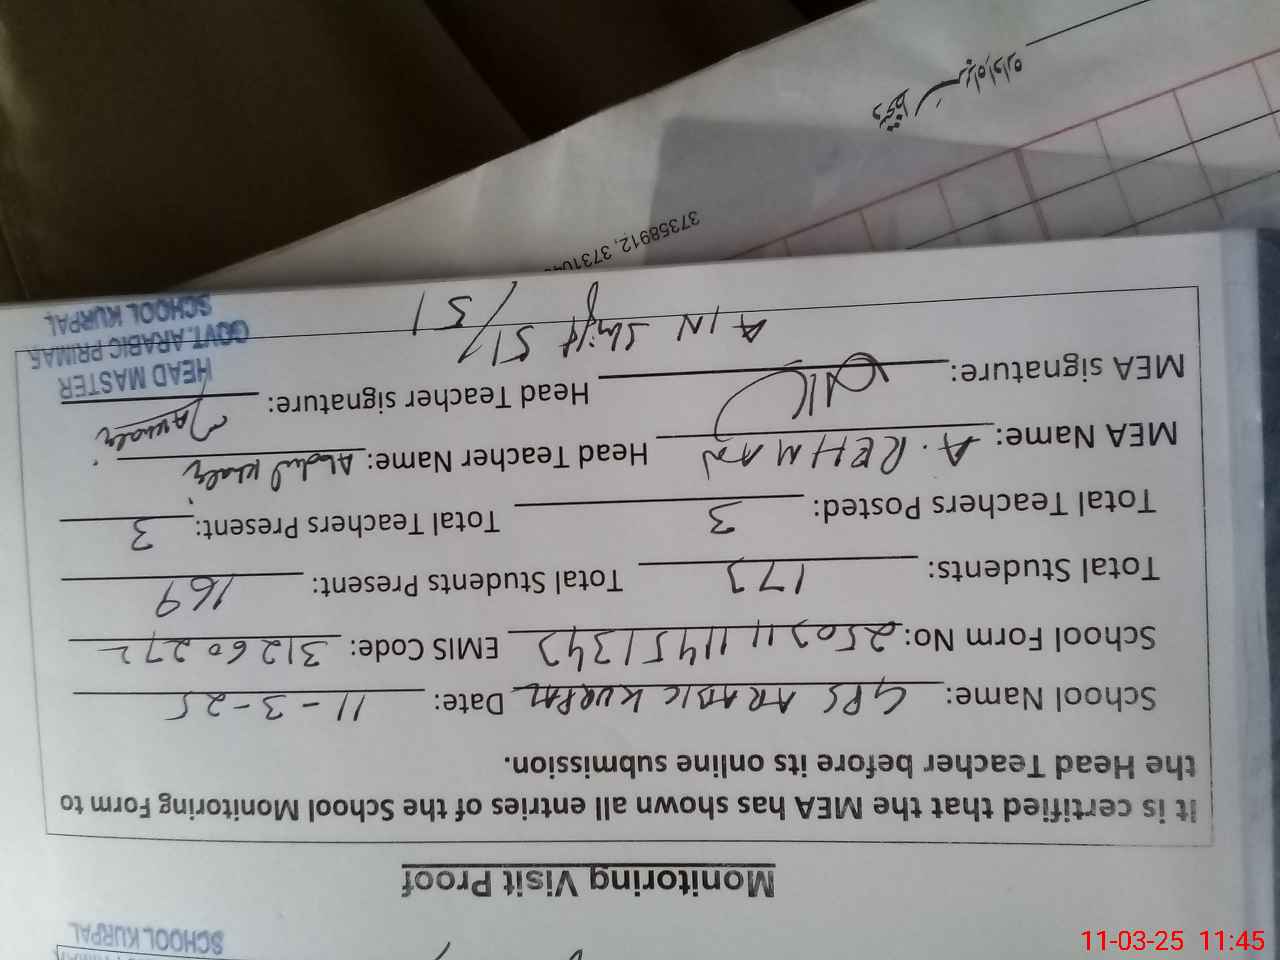 SCHOOL KURPAL
Monitoring Visit Proof
It is certified that the MEA has shown all entries of the School Monitoring Form to
the Head Teacher before its online submission.
School Name: GPS ARABIC KURPAL Date: 11-3-25
School Form No: EMIS Code: 31260272
Total Students: 173 Total Students Present: 169
Total Teachers Posted: 3 Total Teachers Present: 3
MEA Name: A. REHMAN Head Teacher Name: Abdul Khaliq
MEA signature: Head Teacher signature:
HEAD MASTER
GOVT. ARABIC PRIMAR
SCHOOL KURPAL
AIN Shift 51/51
37358912, 3731
11-03-25 11:45